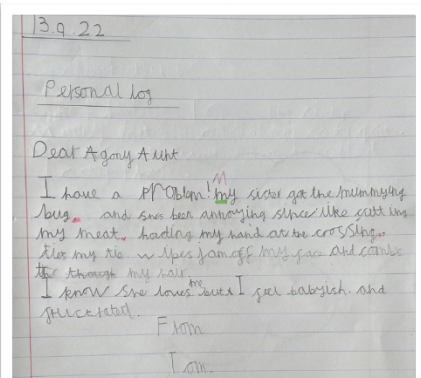 13.9.22
Personal log
Dear Agony Aunt
I have a problem! My sister got the mummying
bug. and shes been annoying since like cutting
my meat. holding my hand at the crossing.
ties my tie wipes jam off my face and combs
through my hair.
I know she loves me but I feel babyish. and
From
Tom.